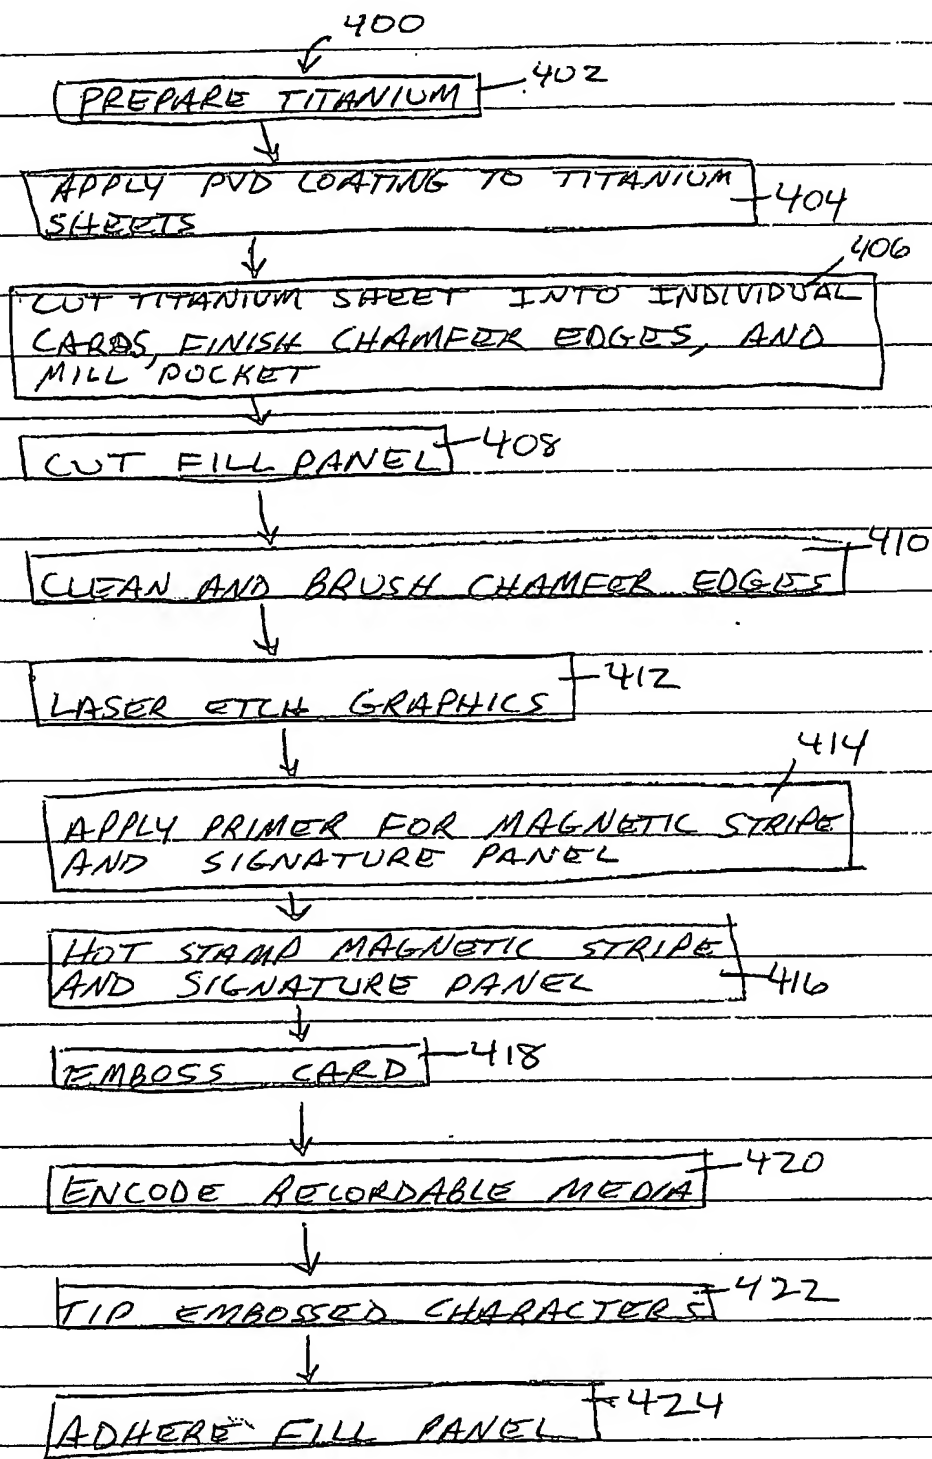 400
PREPARE TITANIUM 402
APPLY PVD COATING TO TITANIUM
SHEETS 404
406
CUT TITANIUM SHEET INTO INDIVIDUAL
CARDS, FINISH CHAMFER EDGES, AND
MILL POCKET
CUT FILL PANEL 408
410
CLEAN AND BRUSH CHAMFER EDGES
412
LASER ETCH GRAPHICS
414
APPLY PRIMER FOR MAGNETIC STRIPE
AND SIGNATURE PANEL
HOT STAMP MAGNETIC STRIPE
AND SIGNATURE PANEL 416
EMBOSS CARD 418
420
ENCODE RECORDABLE MEDIA
TIP EMBOSSED CHARACTERS 422
ADHERE FILL PANEL 424